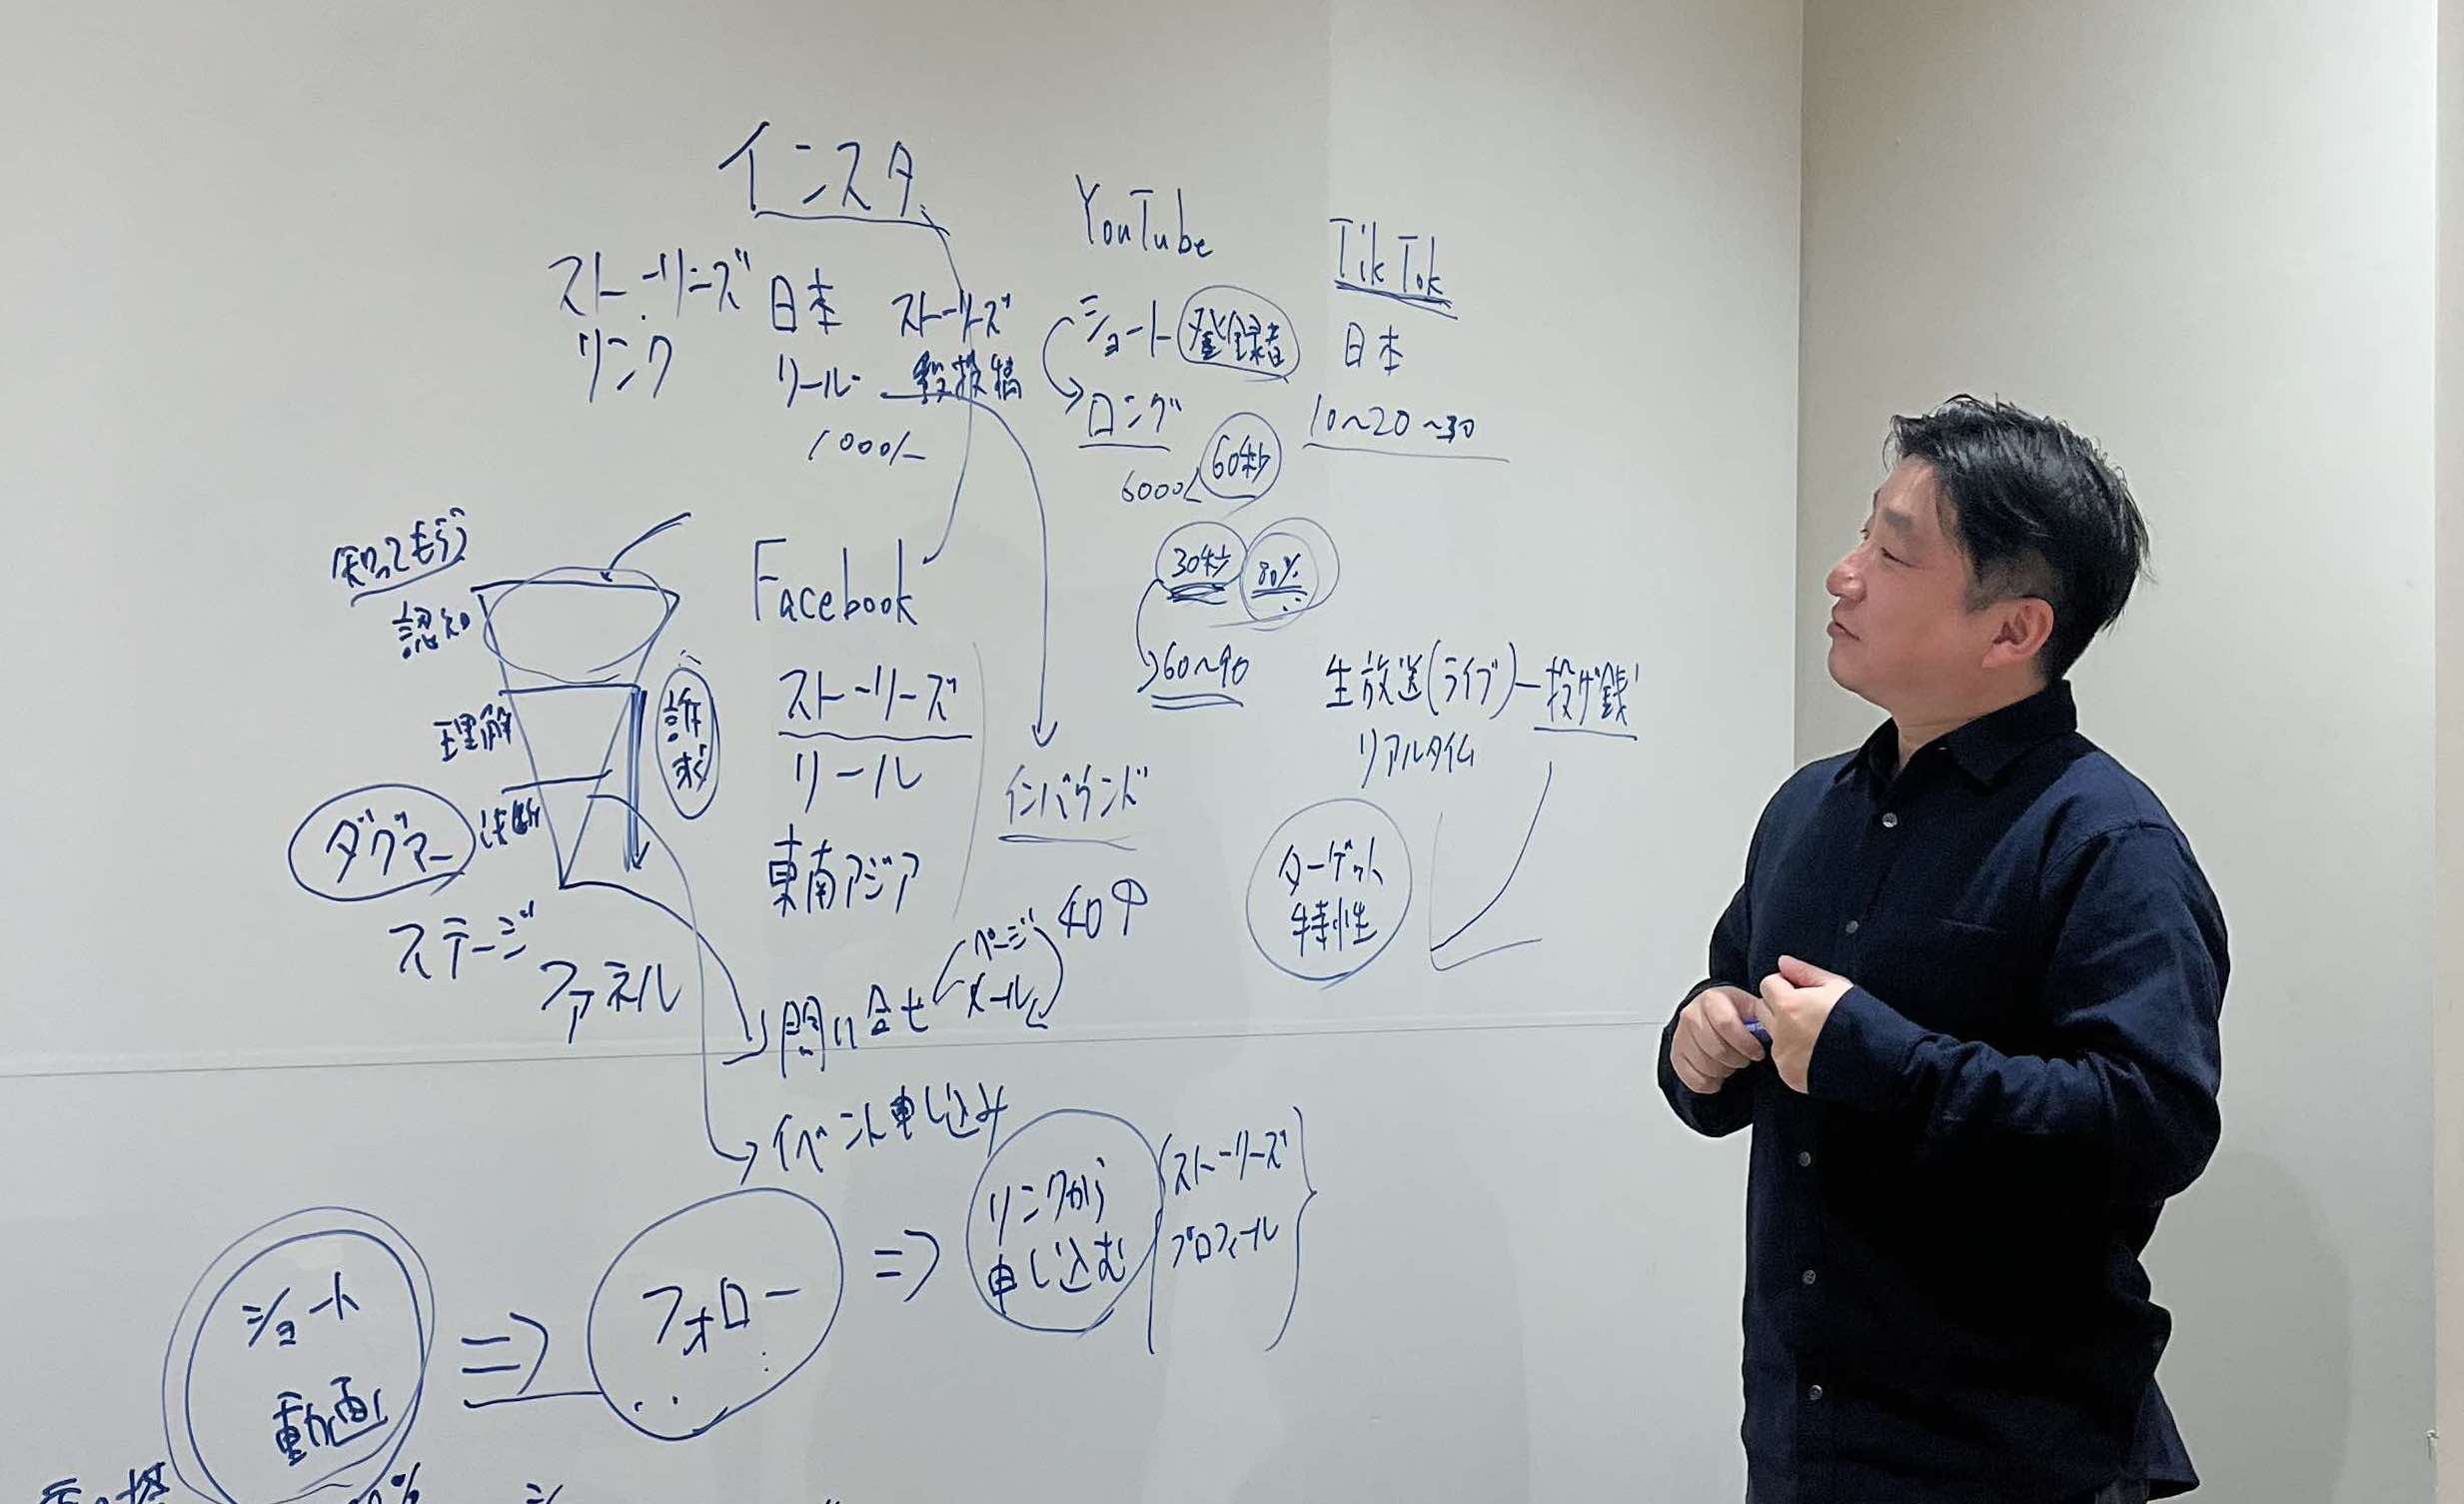 インスタ
YouTube
TikTok
ストーリーズ
リンク
日本
ストーリーズ
リール
投稿
1000人
ショート
登録者
ロング
60秒
日本
10〜20〜30
30秒
80%
60〜90
知ってもらう
認知
理解
決断
訴求
ダグマー
ステージ
ファネル
Facebook
ストーリーズ
リール
東南アジア
インバウンド
40↑
生放送(ライブ)ー投げ銭
リアルタイム
ターゲット
特性
問い合せ
ページ
メール
イベント申し込み
ショート
動画
⇒
フォロー
⇒
リンクから
申し込む
ストーリーズ
プロフィール